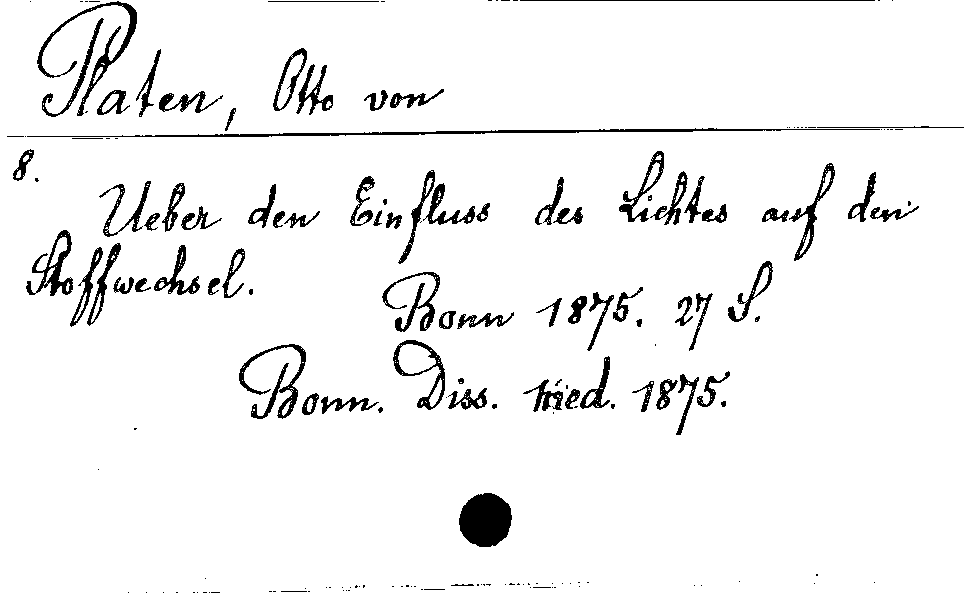 Platen, Otto von
8.
Ueber den Einfluss des Lichtes auf den
Stoffwechsel.
Bonn 1875. 27 S.
Bonn. Diss. med. 1875.